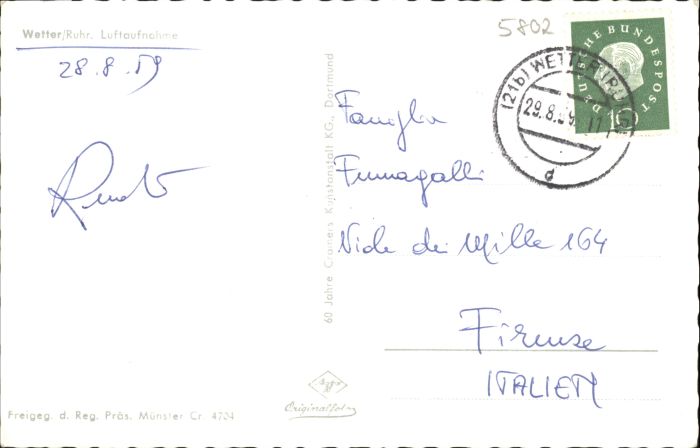 Wetter/Ruhr. Luftaufnahme
28.8.59
Renato
60 Jahre Cramers Kunstanstalt KG., Dortmund
5802
DEUTSCHE BUNDESPOST
10
(21b) WETTER (RUHR)
29.8.59.11
d
Famiglia
Fumagalli
Viale dei Mille 164
Firenze
ITALIEN
Agfa
Originalfoto
Freigeg. d. Reg. Präs. Münster Cr 4704